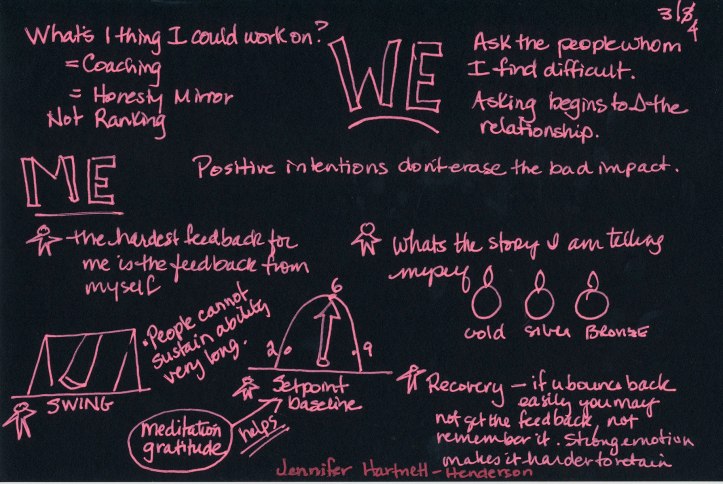 3/8/4
What's 1 thing I could work on?
= Coaching
= Honesty Mirror
Not Ranking
WE
Ask the people whom
I find difficult.
Asking begins to Δ the
relationship.
ME
Positive intentions don't erase the bad impact.
the hardest feedback for
me is the feedback from
myself
whats the story I am telling
myself
Gold Silver Bronze
SWING
• People cannot
sustain ability
very long.
6
2 . . 9
Setpoint
baseline
meditation
gratitude
helps
Recovery – if u bounce back
easily you may
not get the feedback, not
remember it. Strong emotion
makes it harder to retain
Jennifer Hartnett-Henderson